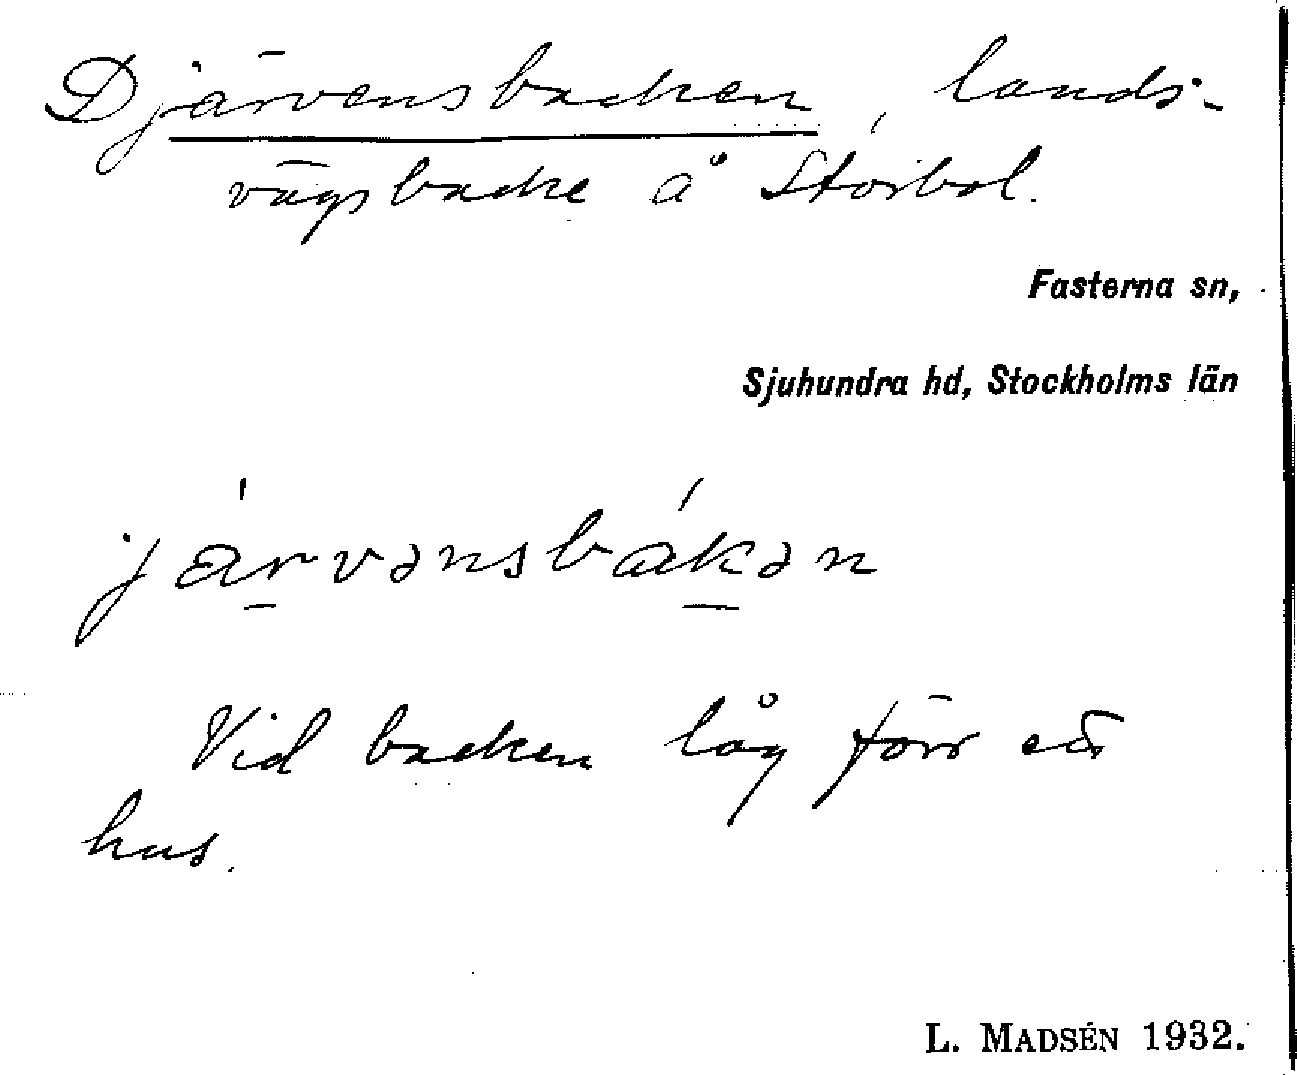 Djärvensbacken, lands-
vägsbacke å Storbol.
Fasterna sn,
Sjuhundra hd, Stockholms län
járvənsbákən
Vid backen låg förr ett
hus.
L. MADSÉN 1932.